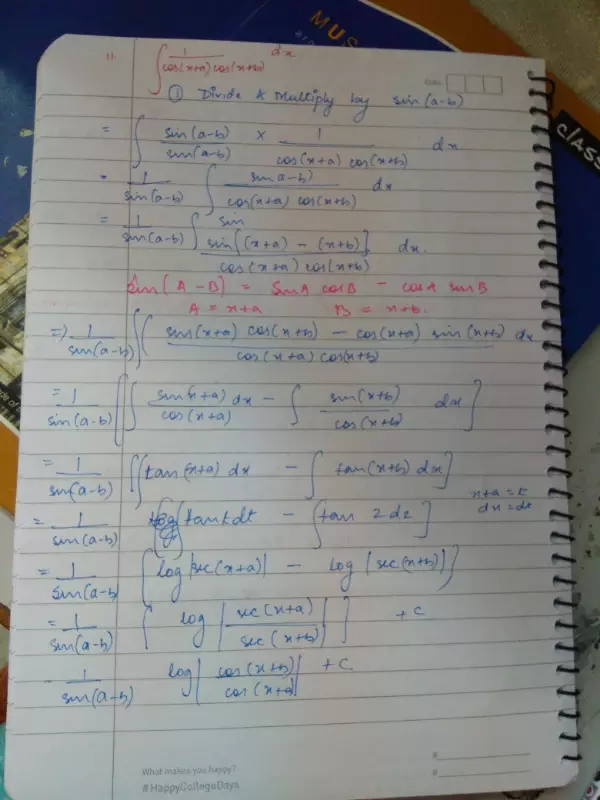 MUS
CLASS
11. ∫ 1 / cos(x+a) cos(x+b) dx
Date:
① Divide & Multiply by sin(a-b)
= ∫ sin(a-b) / sin(a-b) × 1 / cos(x+a) cos(x+b) dx
= 1 / sin(a-b) ∫ sin(a-b) / cos(x+a) cos(x+b) dx
= 1 / sin(a-b) ∫ sin[(x+a) - (x+b)] / cos(x+a) cos(x+b) dx.
Sin(A-B) = SinA cosB - cosA sinB
A = x+a B = x+b.
=> 1 / sin(a-b) ∫( sin(x+a) cos(x+b) - cos(x+a) sin(x+b) / cos(x+a) cos(x+b) dx
= 1 / sin(a-b) [∫ sin(x+a) / cos(x+a) dx - ∫ sin(x+b) / cos(x+b) dx]
= 1 / sin(a-b) [∫tan(x+a) dx - ∫ tan(x+b) dx]
x+a = t
dx = dt
= 1 / sin(a-b) [∫tant dt - ∫tan z dz]
= 1 / sin(a-b) [log|sec(x+a)| - log|sec(x+b)|]
= 1 / sin(a-b) [log | sec(x+a) / sec(x+b) | ] + C
1 / sin(a-b) log | cos(x+b) / cos(x+a) | + C
What makes you happy?
#HappyCollegeDays
#
#